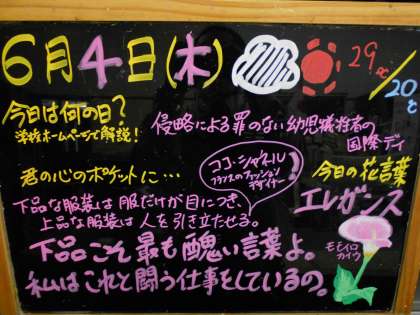 6月4日(木)
29℃/20℃
今日は何の日?
学校ホームページで解説!
侵略による罪のない幼児犠牲者の
国際デイ
君の心のポケットに…
ココ・シャネル
フランスのファッション
デザイナー
今日の花言葉
エレガンス
下品な服装は服だけが目につき、
上品な服装は人を引き立たせる。
モモイロ
カイウ
下品こそ最も醜い言葉よ。
私はこれと闘う仕事をしているの。